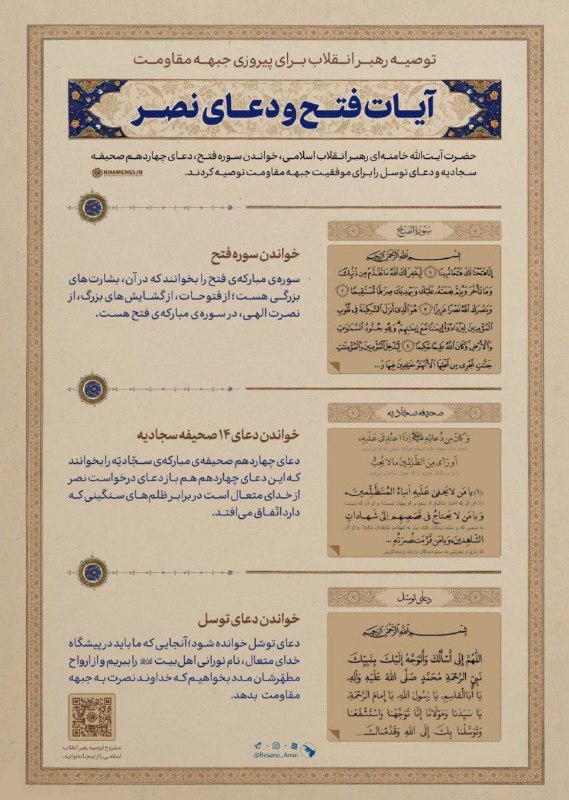 توصیه رهبر انقلاب برای پیروزی جبهه مقاومت
آیات فتح و دعای نصر
حضرت آیت‌الله خامنه‌ای رهبر انقلاب اسلامی، خواندن سوره فتح، دعای چهاردهم صحیفه
سجادیه و دعای توسل را برای موفقیت جبهه مقاومت توصیه کردند.
KHAMENEI.IR
سورة الفتح
بسم الله الرحمن الرحیم
إِنَّا فَتَحْنَا لَكَ فَتْحًا مُبِينًا ﴿۱﴾ لِيَغْفِرَ لَكَ اللَّهُ مَا تَقَدَّمَ مِنْ ذَنْبِكَ
وَمَا تَأَخَّرَ وَيُتِمَّ نِعْمَتَهُ عَلَيْكَ وَيَهْدِيَكَ صِرَاطًا مُسْتَقِيمًا ﴿۲﴾
وَيَنْصُرَكَ اللَّهُ نَصْرًا عَزِيزًا ﴿۳﴾ هُوَ الَّذِي أَنْزَلَ السَّكِينَةَ فِي قُلُوبِ
الْمُؤْمِنِينَ لِيَزْدَادُوا إِيمَانًا مَعَ إِيمَانِهِمْ وَلِلَّهِ جُنُودُ السَّمَاوَاتِ
وَالْأَرْضِ وَكَانَ اللَّهُ عَلِيمًا حَكِيمًا ﴿۴﴾ لِيُدْخِلَ الْمُؤْمِنِينَ وَالْمُؤْمِنَاتِ
جَنَّاتٍ تَجْرِي مِنْ تَحْتِهَا الْأَنْهَارُ خَالِدِينَ فِيهَا وَ...
خواندن سوره فتح
سوره‌ی مبارکه‌ی فتح را بخوانند که در آن، بشارت‌های
بزرگی هست؛ از فتوحات، از گشایش‌های بزرگ، از
نصرت الهی، در سوره‌ی مبارکه‌ی فتح هست.
صحیفه سجادیه
وَكَانَ مِنْ دُعَائِهِ إِذَا اعْتُدِيَ عَلَيْهِ،
أَوْ رَأَى مِنَ الظَّالِمِينَ مَا لَا يُحِبُّ
(۱) يَا مَنْ لَا يَخْفَى عَلَيْهِ أَنْبَاءُ الْمُتَظَلِّمِينَ،
وَيَا مَنْ لَا يَحْتَاجُ فِي قَصَصِهِمْ إِلَى شَهَادَاتِ
الشَّاهِدِينَ، وَيَا مَنْ قَرُبَتْ نُصْرَتُهُ...
خواندن دعای ۱۴ صحیفه سجادیه
دعای چهاردهم صحیفه‌ی مبارکه‌ی سجّادیّه را بخوانند
که این دعای چهاردهم هم باز دعای درخواست نصر
از خدای متعال است در برابر ظلم‌های سنگینی که
دارد اتّفاق می‌افتد.
دعای توسل
بسم الله الرحمن الرحیم
اللَّهُمَّ إِنِّي أَسْأَلُكَ وَأَتَوَجَّهُ إِلَيْكَ بِنَبِيِّكَ
نَبِيِّ الرَّحْمَةِ مُحَمَّدٍ صَلَّى اللَّهُ عَلَيْهِ وَآلِهِ،
يَا أَبَا الْقَاسِمِ، يَا رَسُولَ اللَّهِ، يَا إِمَامَ الرَّحْمَةِ،
يَا سَيِّدَنَا وَمَوْلَانَا إِنَّا تَوَجَّهْنَا وَاسْتَشْفَعْنَا
وَتَوَسَّلْنَا بِكَ إِلَى اللَّهِ وَقَدَّمْنَاكَ...
خواندن دعای توسل
دعای توسّل خوانده شود؛ آنجایی که ما باید در پیشگاه
خدای متعال، نام نورانی اهل‌بیت را ببریم و از ارواح
مطهّرشان مدد بخواهیم که خداوند نصرت به جبهه
مقاومت بدهد.
مشروح توصیه رهبر انقلاب
اسلامی را از اینجا بخوانید.
@Resane_Amin